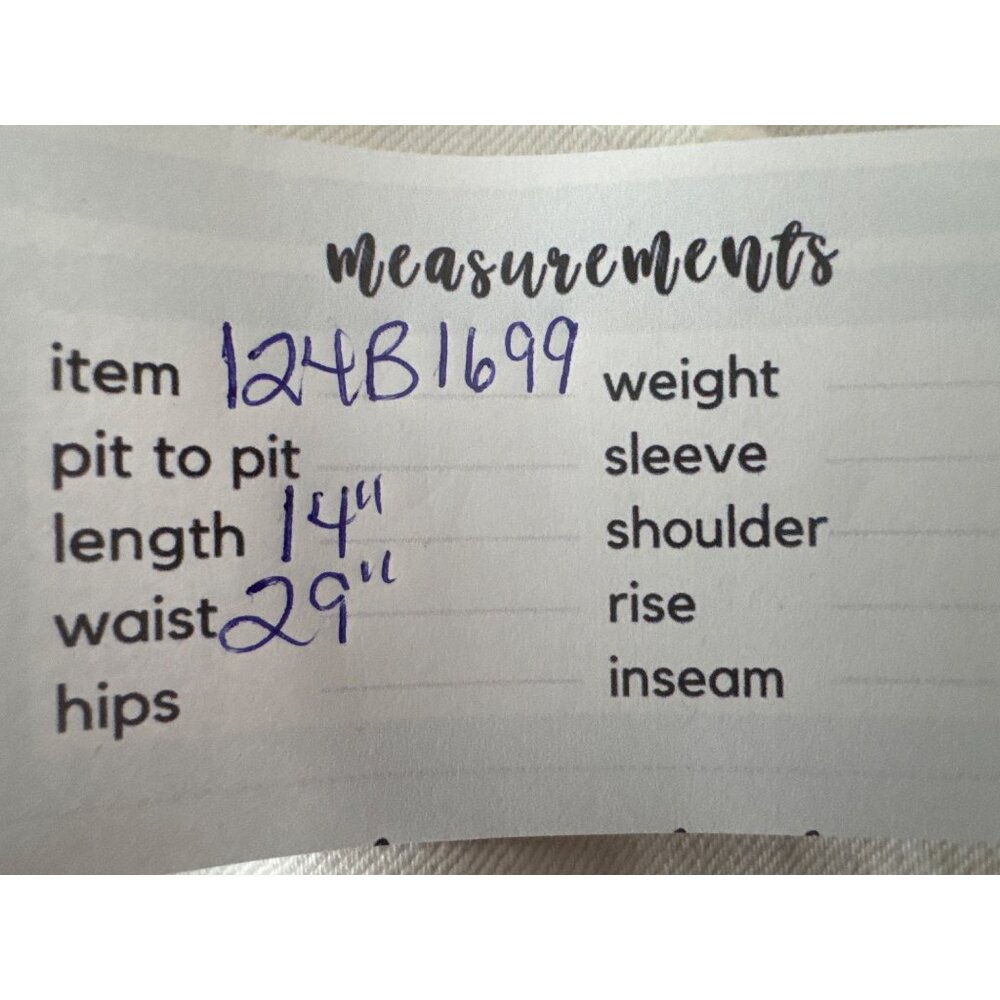 measurements
item 124B1699
pit to pit
length 14"
waist 29"
hips
weight
sleeve
shoulder
rise
inseam